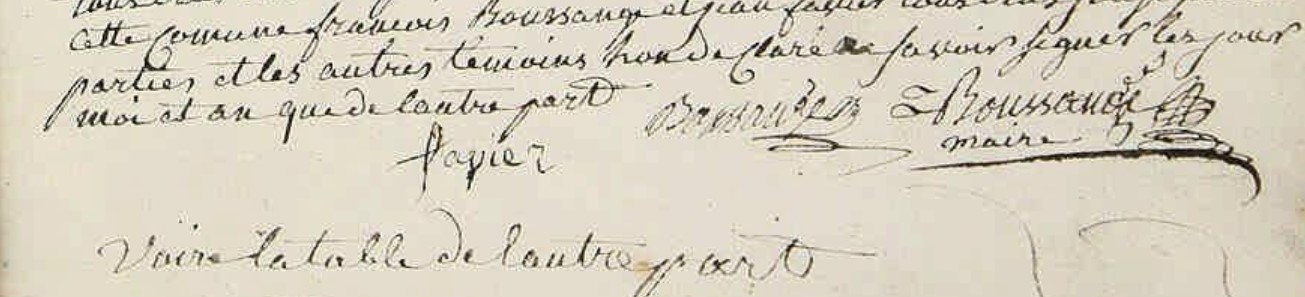 cette Comune francois Boussange et jean favier tous
parties et les autres temoins hon de Claré ne savoir signer les jour
moi et an que de lautre part
Boussange Boussange
maire
favier
Voire la table de lautre part